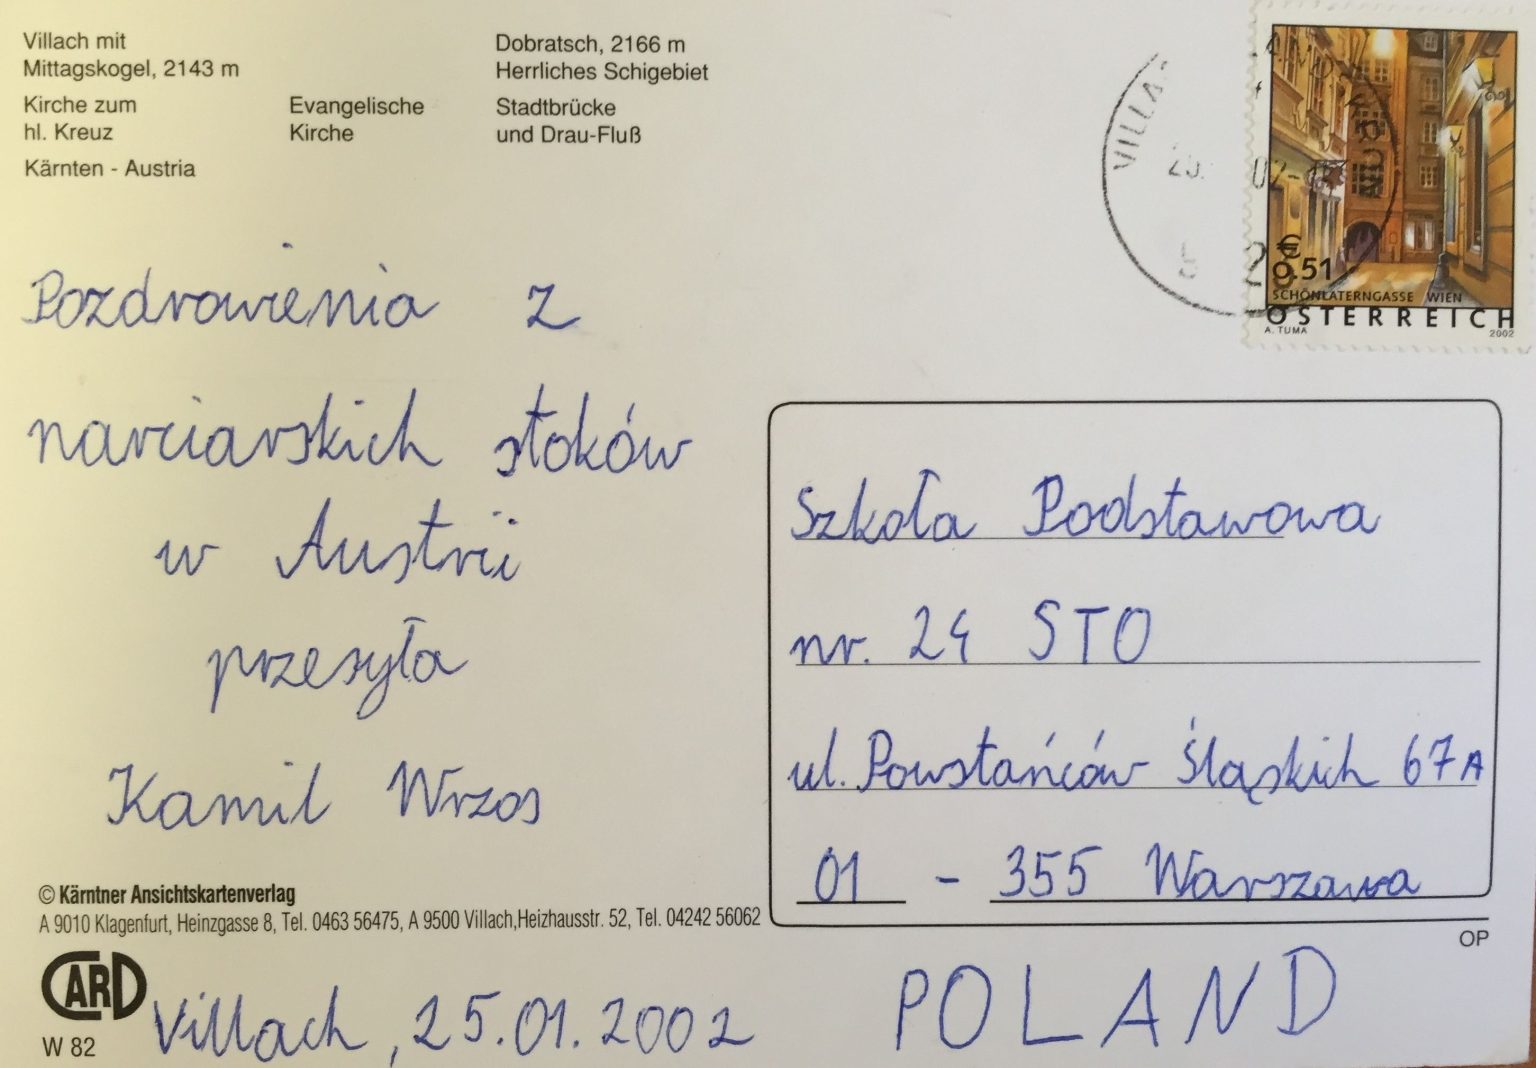 Villach mit
Mittagskogel, 2143 m
Kirche zum
hl. Kreuz
Evangelische
Kirche
Kärnten - Austria
Dobratsch, 2166 m
Herrliches Schigebiet
Stadtbrücke
und Drau-Fluß
€
0.51
SCHÖNLATERNGASSE WIEN
ÖSTERREICH
A. TUMA 2002
Pozdrowienia z
narciarskich stoków
w Austrii
przesyła
Kamil Wrzos
Szkoła Podstawowa
nr. 24 STO
ul. Powstańców Śląskich 67A
01 - 355 Warszawa
POLAND
OP
© Kärntner Ansichtskartenverlag
A 9010 Klagenfurt, Heinzgasse 8, Tel. 0463 56475, A 9500 Villach,Heizhausstr. 52, Tel. 04242 56062
CARD
W 82
Villach, 25.01.2002